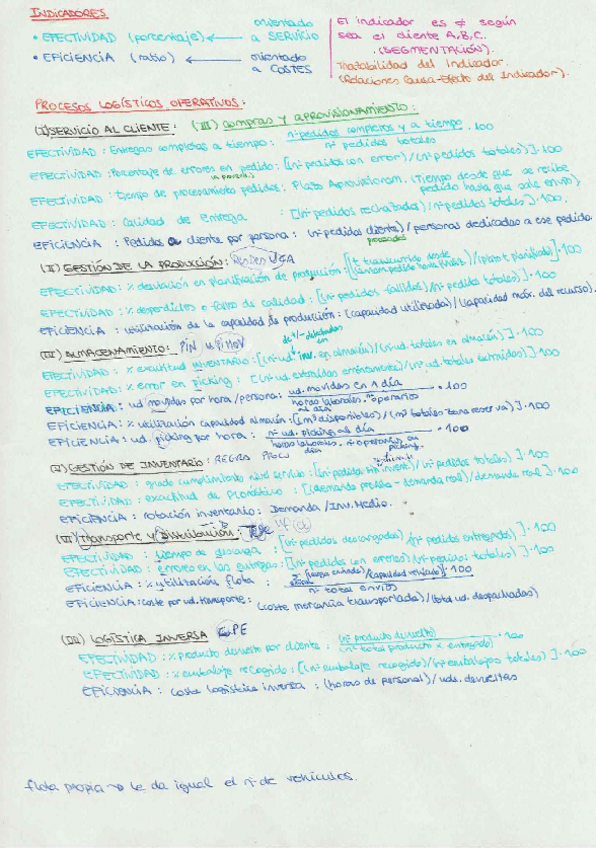 INDICADORES
• EFECTIVIDAD (porcentaje) ← orientado a SERVICIO
• EFICIENCIA (ratio) ← orientado a COSTES
El indicador es ≠ según
sea el cliente A,B,C.
(SEGMENTACIÓN).
Tratabilidad del Indicador.
(Relaciones Causa-Efecto del Indicador).
PROCESOS LOGÍSTICOS OPERATIVOS:
(I) SERVICIO AL CLIENTE: (VII) compras y aprovisionamiento:
EFECTIVIDAD: Entregas completas a tiempo: nº pedidos completos y a tiempo / nº pedidos totales · 100
EFECTIVIDAD: Porcentaje de errores en pedido: [(nº pedidos con error)/(nº pedidos totales)]·100
EFECTIVIDAD: tiempo de procesamiento pedidos: Plazo Aprovisionam. (Tiempo desde que se recibe pedido hasta que sale envío).
EFECTIVIDAD: Calidad de entrega: [(nº pedidos rechazados)/nº pedidos totales]·100.
EFICIENCIA: Pedidos a cliente por persona: (nº pedidos cliente)/personas dedicadas a ese pedido.
(II) GESTIÓN DE LA PRODUCCIÓN:
EFECTIVIDAD: % desviación en planificación de producción: /(plazo t planificado)]·100
EFECTIVIDAD: % desperdicios o fallos de calidad: [(nº pedidos fallidos)/(nº pedidos totales)]·100
EFICIENCIA: utilización de la capacidad de producción: (capacidad utilizada)/(capacidad máx. del recurso).
(III) ALMACENAMIENTO:
EFECTIVIDAD: % exactitud INVENTARIO: inv. en almacén)/(nº ud. totales en almacén)]·100
EFECTIVIDAD: % error en picking: [(nº ud. extraídas erróneamente)/(nº ud. totales extraídas)]·100
EFICIENCIA: ud. movidas por hora/persona: ud. movidas en 1 día / horas laborales · nº operarios al día · 100
EFICIENCIA: % utilización capacidad almacén: [(m³ disponibles)/(m³ totales zona reserva)]·100
EFICIENCIA: ud. picking por hora: nº ud. picking al día / horas laborales día · nº operarios en picking · 100
GESTIÓN DE INVENTARIO:
EFECTIVIDAD: grado cumplimiento nivel servicio: /(nº pedidos totales)]·100
EFECTIVIDAD: exactitud de pronóstico: [(demanda prevista - demanda real)/demanda real]·100
EFICIENCIA: rotación inventario: Demanda/Inv. Medio.
Transporte y Distribución:
EFECTIVIDAD: tiempo de descarga: [(nº pedidos descargados)/(nº pedidos entregados)]·100
EFECTIVIDAD: errores en las entregas: [(nº pedidos con errores)/(nº pedidos totales)]·100
EFICIENCIA: % utilización flota: (carga enviada)/(capacidad vehículo) / nº total envíos · 100
EFICIENCIA: coste por ud. transporte: (coste mercancía transportada)/(total ud. despachadas)
LOGÍSTICA INVERSA
EFECTIVIDAD: % producto devuelto por cliente: (nº producto devuelto) / (nº total producto entregado) · 100
EFECTIVIDAD: % embalaje recogido: [(nº embalaje recogido)/(nº embalajes totales)]·100
EFICIENCIA: coste logística inversa: (horas de personal)/uds. devueltas
flota propia → le da igual el nº de vehículos.